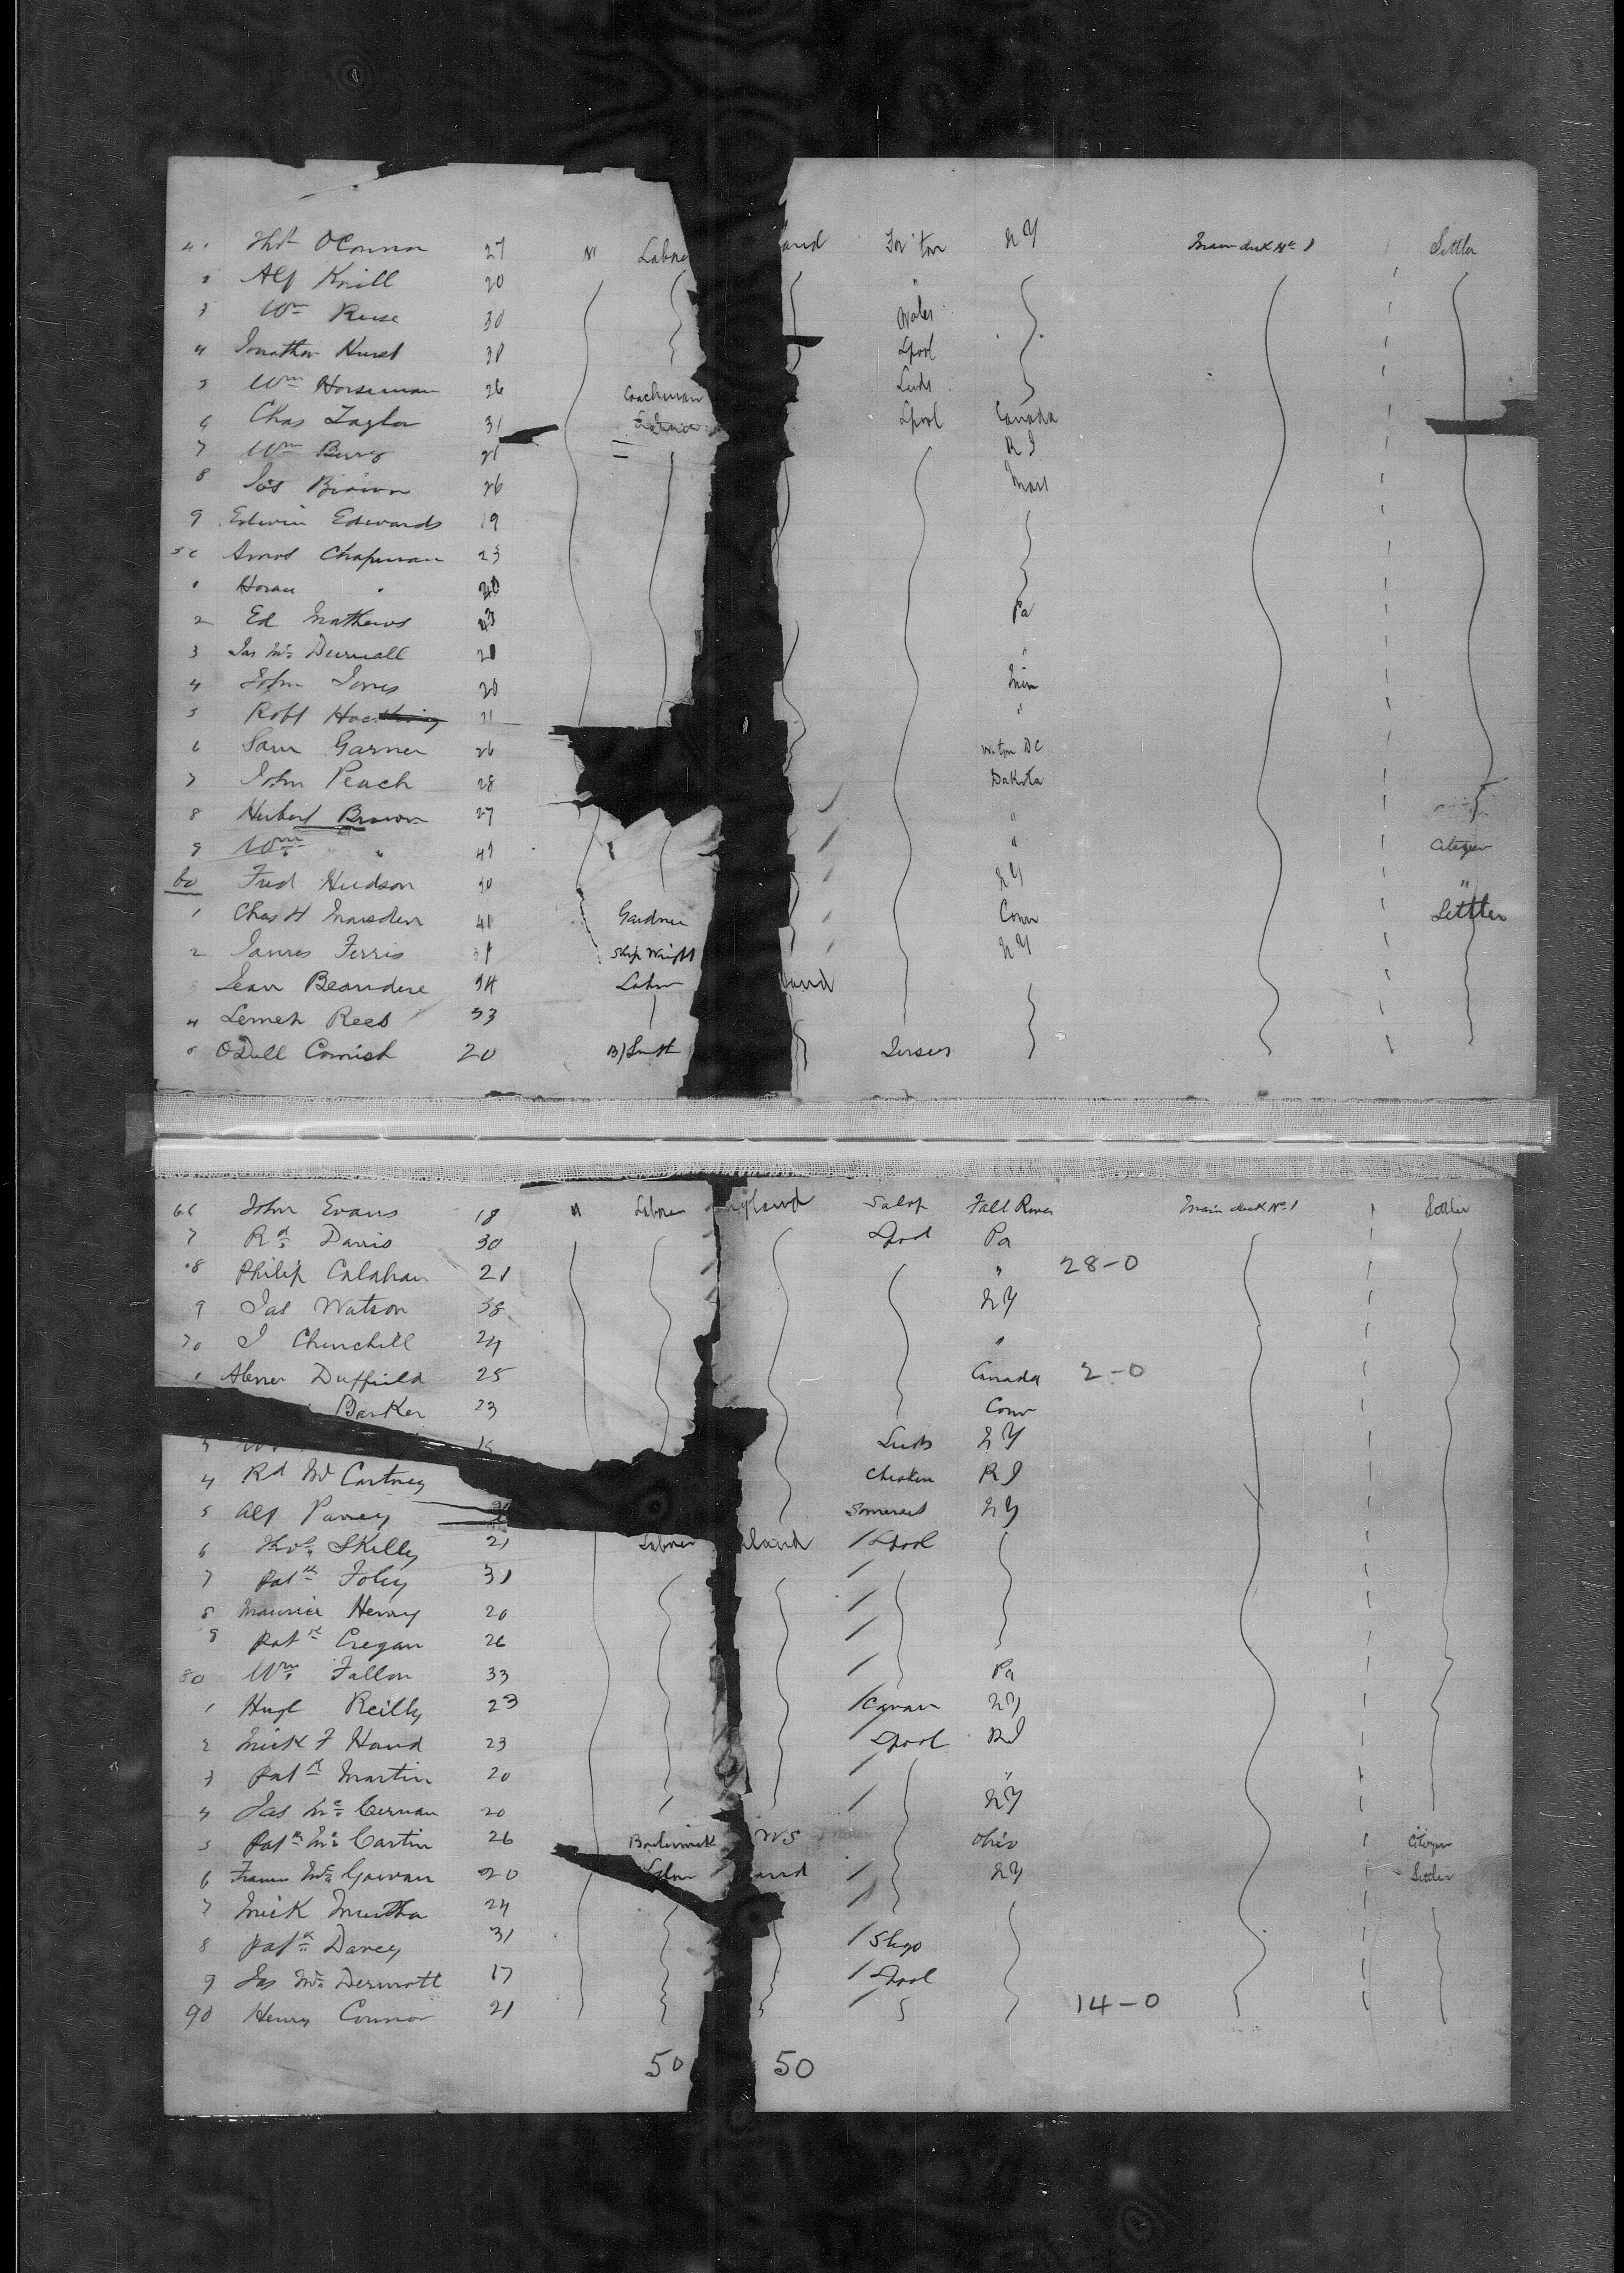 41 Thos OConnor 27 M Labore and Tor'ton NY Main deck No 1 1 Settler
2 Alf Knill 20 "
3 Wm Reese 30 Wales
4 Jonathan Hurst 38 Lpool
5 Wm Horseman 26 Coachman Leeds
6 Chas Taylor 31 Lpool Canada
7 Wm Berry 21 R I
8 Jos Brown 26 Mass
9 Edwin Edwards 19
50 Amos Chapman 23
1 Horau "
2 Ed Mathews 23 Pa
3 Jas Mc Durnall 21 "
4 John Jones 20 Min
5 Robt 21 "
6 Sam Garner 26 W.ton DC
7 John Peach 28 Dakota
8 Herbert Brown 27 "
9 Wm " 47 " Citizen
60 Fred Hudson 30 NY "
1 Chas H Marsden 41 Gardner Conn Settler
2 James Ferris 31 Ship Wright NY
3 Jean Beaudere 34 Labor land
4 Lemeh Rees 33
5 ODell Cornish 20 B/Smith Jersey
66 John Evans 18 M Labore ngland Salop Fall River Main deck No 1 1 Settler
7 Rd Davis 30 Lpool Pa
8 Philip Calahan 21 " 28-0
9 Jas Watson 38 NY
70 J Churchill 24 "
1 Abner Duffield 25 Canada 2-0
Barker 23 Conn
3 Leeds NY
4 Rd Mc Cartney R I
5 Alf Pavey Somerset NY
6 Thos Skelly 21 Laborer land / Lpool
7 Patk Foley 31 /
8 Maurice Henry 20 /
9 Patk Cregan 26 /
80 Wm Fallon 33 / Pa
1 Hugh Reilly 23 / Cavan NY
2 Mick F Hand 23 / Lpool RI
3 Patk Martin 20 / "
4 Jas Mc Cernan 20 / NY
5 Patk Mc Cartin 26 US Ohio Citizen
6 Frances Mc Gowan 20 Labor and / NY Settler
7 Mick Murtha 24 /
8 Patk Darcy 31 / Sligo
9 Jas Mc Dermott 17 / Lpool
90 Henry Connor 21 / 14-0
50 50